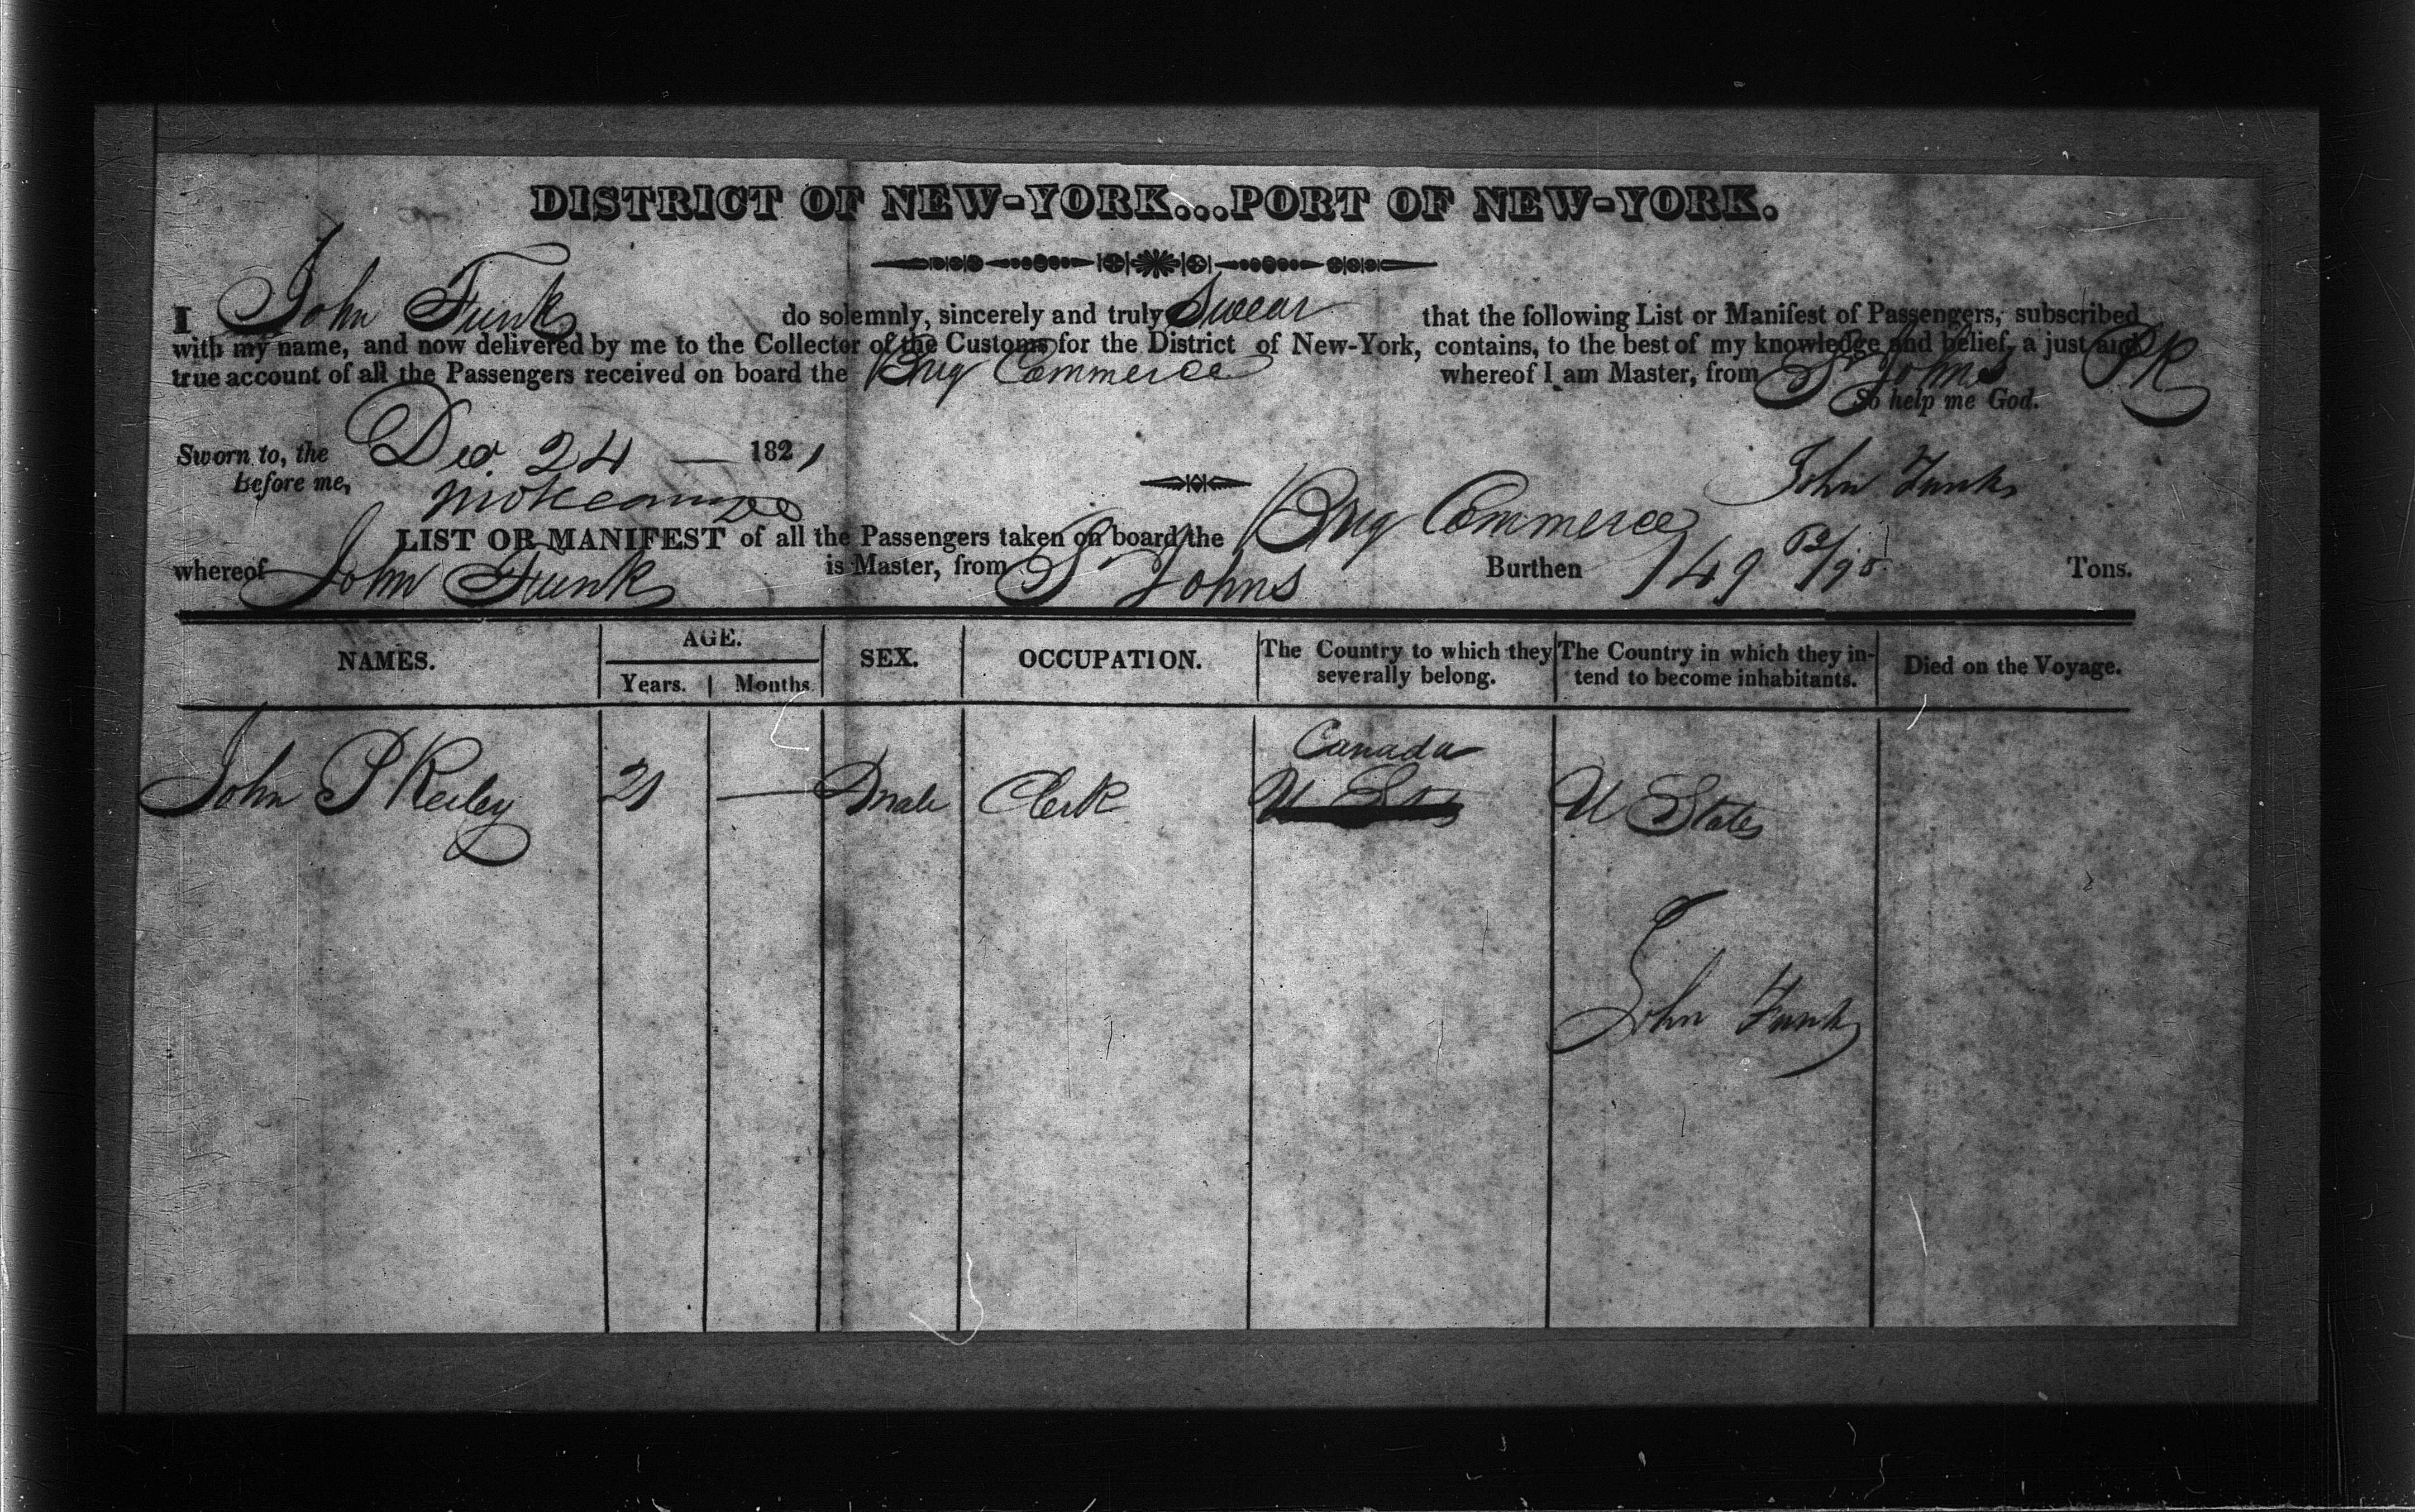 DISTRICT OF NEW-YORK...PORT OF NEW-YORK.
I John Funk do solemnly, sincerely and truly Swear that the following List or Manifest of Passengers, subscribed
with my name, and now delivered by me to the Collector of the Customs for the District of New-York, contains, to the best of my knowledge and belief, a just and
true account of all the Passengers received on board the Brig Commerce whereof I am Master, from St Johns PR
So help me God.
Sworn to, the Dec. 24 — 1821
Before me,
John Funk
LIST OR MANIFEST of all the Passengers taken on board the Brig Commerce
whereof John Funk is Master, from St Johns Burthen 149 Tons.
NAMES. AGE. SEX. OCCUPATION. The Country to which they severally belong. The Country in which they intend to become inhabitants. Died on the Voyage.
Years. Months
Canada
John P Keiley 21 — male Clerk U States U States
John Funk